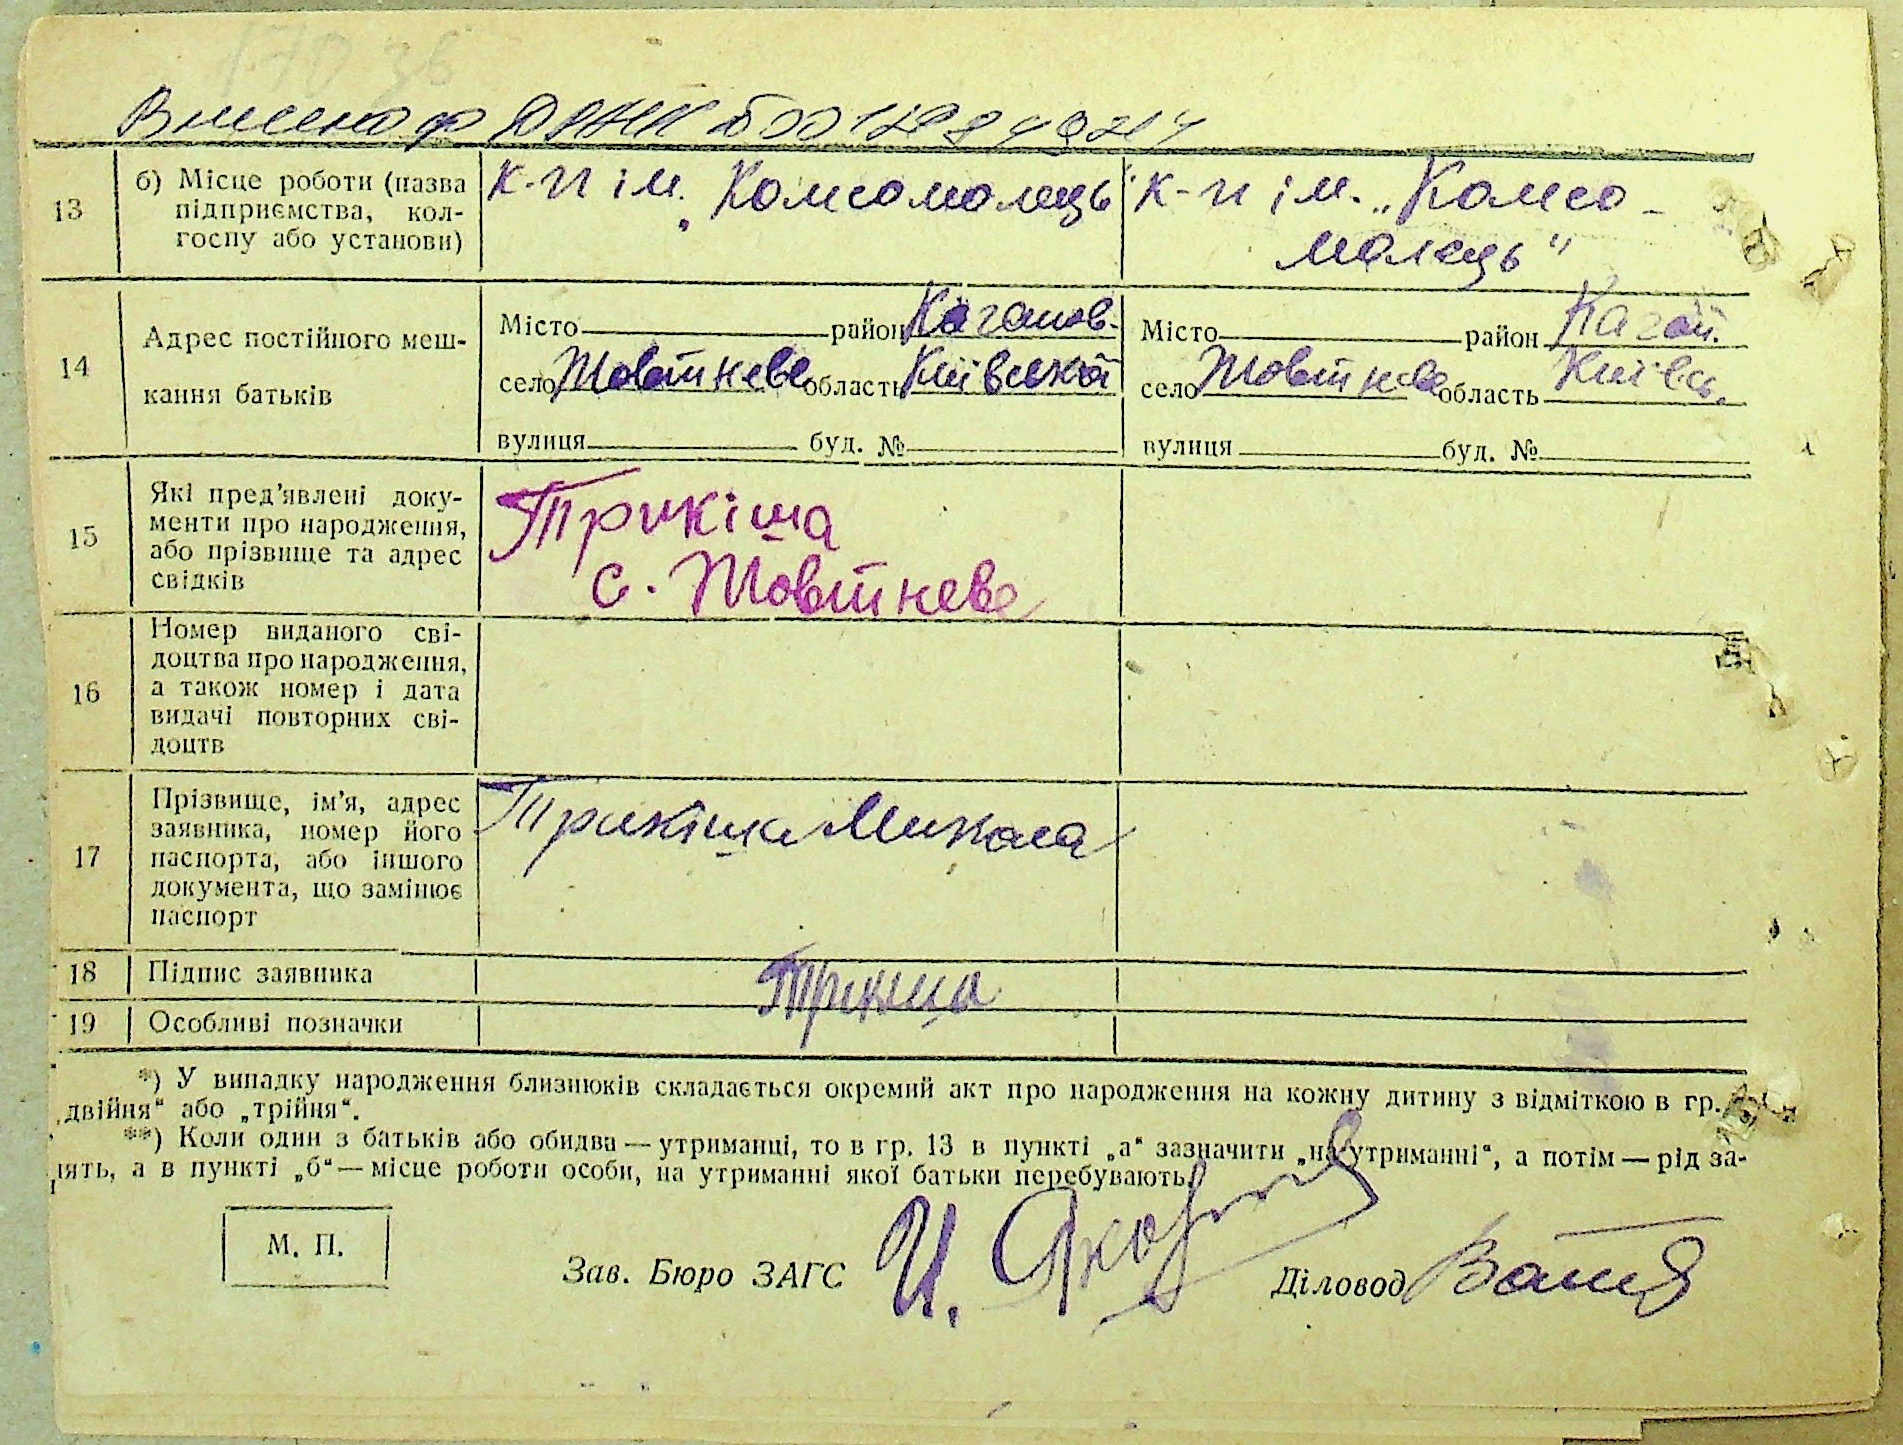 Внесено ф ДРАЦС
13 б) Місце роботи (назва підприємства, колгоспу або установи) к-п ім. „Комсомолець" к-п ім. „Комсо-
молець"
14 Адрес постійного меш-
кання батьків
Місто район Каганов. Місто район Каган.
село Жовтневе область Київської село Жовтневе область Київсь.
вулиця буд. № вулиця буд. №
15 Які пред'явлені доку-
менти про народження,
або прізвище та адрес
свідків
Трикіша
с. Жовтневе
16 Номер виданого сві-
доцтва про народження,
а також номер і дата
видачі повторних сві-
доцтв
17 Прізвище, ім'я, адрес
заявника, номер його
паспорта, або іншого
документа, що замінює
паспорт
Трикіша Микола
18 Підпис заявника
19 Особливі позначки
*) У випадку народження близнюків складається окремий акт про народження на кожну дитину з відміткою в гр.
„двійня" або „трійня".
**) Коли один з батьків або обидва — утриманці, то в гр. 13 в пункті „а" зазначити „на утриманні", а потім — рід за-
нять, а в пункті „б" — місце роботи особи, на утриманні якої батьки перебувають.
М. П.
Зав. Бюро ЗАГС Діловод